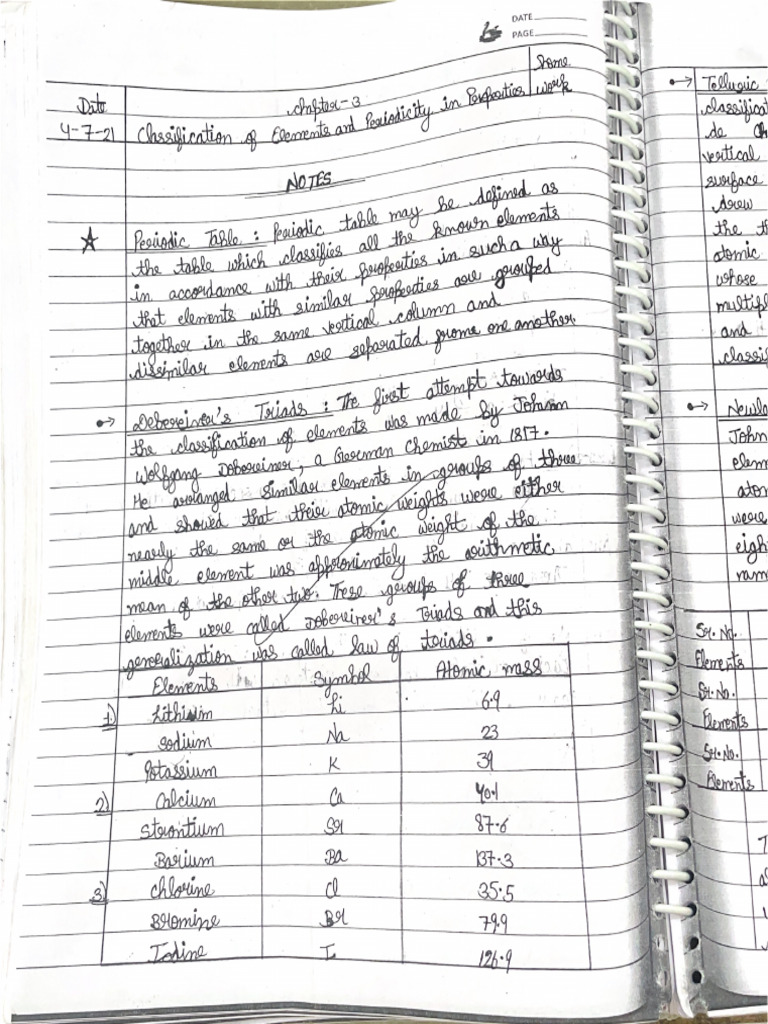 DATE
PAGE
Date
4-7-21
Chapter-3
Classification of Elements and Periodicity in Properties
Home
work
NOTES
Periodic Table : Periodic table may be defined as
the table which classifies all the known elements
in accordance with their properties in such a way
that elements with similar properties are grouped
together in the same vertical column and
dissimilar elements are separated frome one another.
Debereiner's Triads : The first attempt towards
the classification of elements was made by Johann
Wolfgang Dobereiner, a German Chemist in 1817.
He arranged similar elements in groups of three
and showed that their atomic weights were either
nearly the same or the atomic weight of the
middle element was approximately the arithmetic
mean of the other two. These groups of three
elements were called Dobereiner's Triads and this
generalization was called law of triads.
Elements Symbol Atomic mass
1) Lithium Li 6.9
Sodium Na 23
Potassium K 39
2) Calcium Ca 40.1
Strontium Sr 87.6
Barium Ba 137.3
3) Chlorine Cl 35.5
Bromine Br 79.9
Iodine I 126.9
Telluric
classificat
de Ch
vertical
surface
drew
the th
atomic
whose
multipl
and
classif
Newla
John
elem
atom
were
eigh
nam
Sr. No.
Elements
Sr. No.
Elements
Sr. No.
Elements